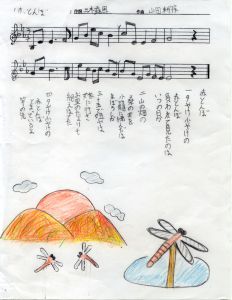 作詞 三木露風
作曲 山田耕筰
赤とんぼ
一 夕やけ小やけの
赤とんぼ
負われて見たのは
いつの日か
二 山の畑の
桑の実を
小籠に摘んだは
まぼろしか
嫁に行き
お里のたよりも
絶えはてた
四 夕やけ小やけの
赤とんぼ
とまっているよ
竿の先